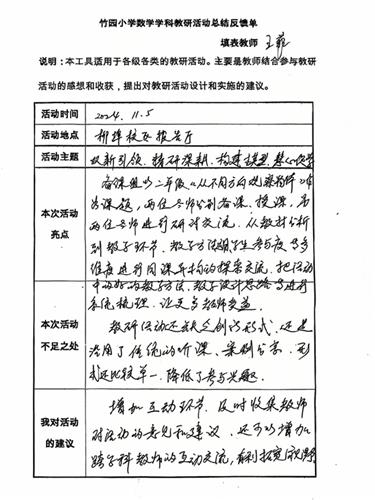 竹园小学数学学科教研活动总结反馈单
填表教师 王菲
说明：本工具适用于各级各类的教研活动。主要是教师结合参与教研
活动的感想和收获，提出对教研活动设计和实施的建议。
活动时间 2024. 11. 5
活动地点 柳 校区报告厅
活动主题 以新引领、精研深耕、构建模型、
本次活动亮点
备课组以二年级《从不同方向观察物体》
为课题，两位老师分别备课、授课，吊
两位老师进行研讨交流。从教材分析
到教学环节、教学方法、学生参与度等多
维度进行同课异构的探索交流，把活动
中的好的教学方法、教学设计思路等进行
系统梳理，让更多教师受益。
本次活动不足之处
教研活动还缺乏创新形式，还是
沿用了传统的听课、案例分享，形
式还比较单一，降低了参与兴趣。
我对活动的建议
增加互动环节，及时收集教师
对活动的意见和建议，还可以增加
跨学科教师的互动交流，有利拓宽视野